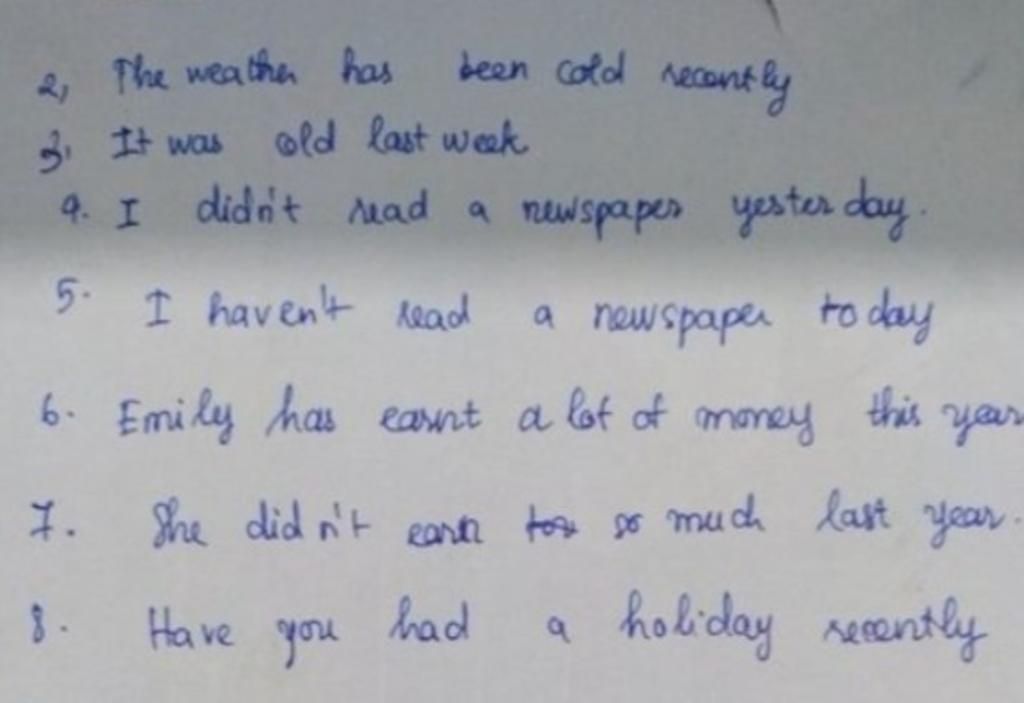 2, The weather has been cold recently
3. It was cold last week
4. I didn't read a newspaper yesterday.
5. I haven't read a newspaper today
6. Emily has earnt a lot of money this year
7. She didn't earn so much last year.
8. Have you had a holiday recently